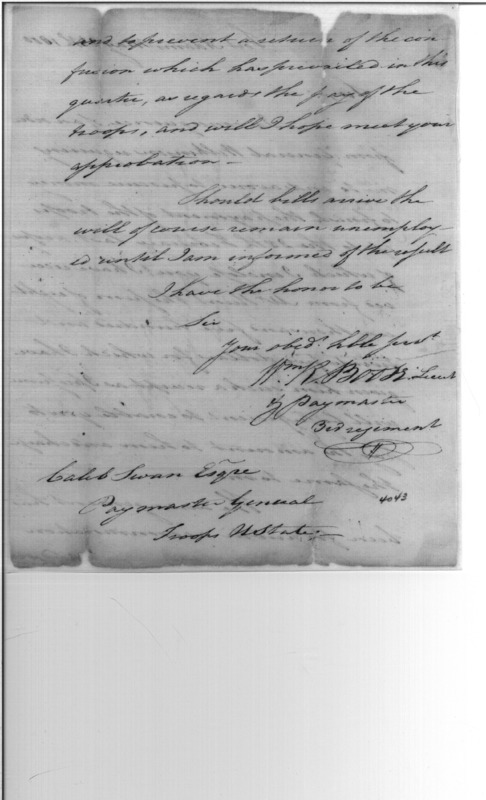 and to prevent a return of the con
fusion which has prevailed in this
quarter, as regards the pay of the
troops, and will I hope meet your
approbation —
Should bills arrive the
will of course remain unemploy-
ed until I am informed of the result
I have the honor to be
Sir
Your obedt. hble servt
Wm R. Boote Lieut
& Paymaster
3rd regement
Caleb Swan Esqre
4043
Paymaster General
Troops UStates